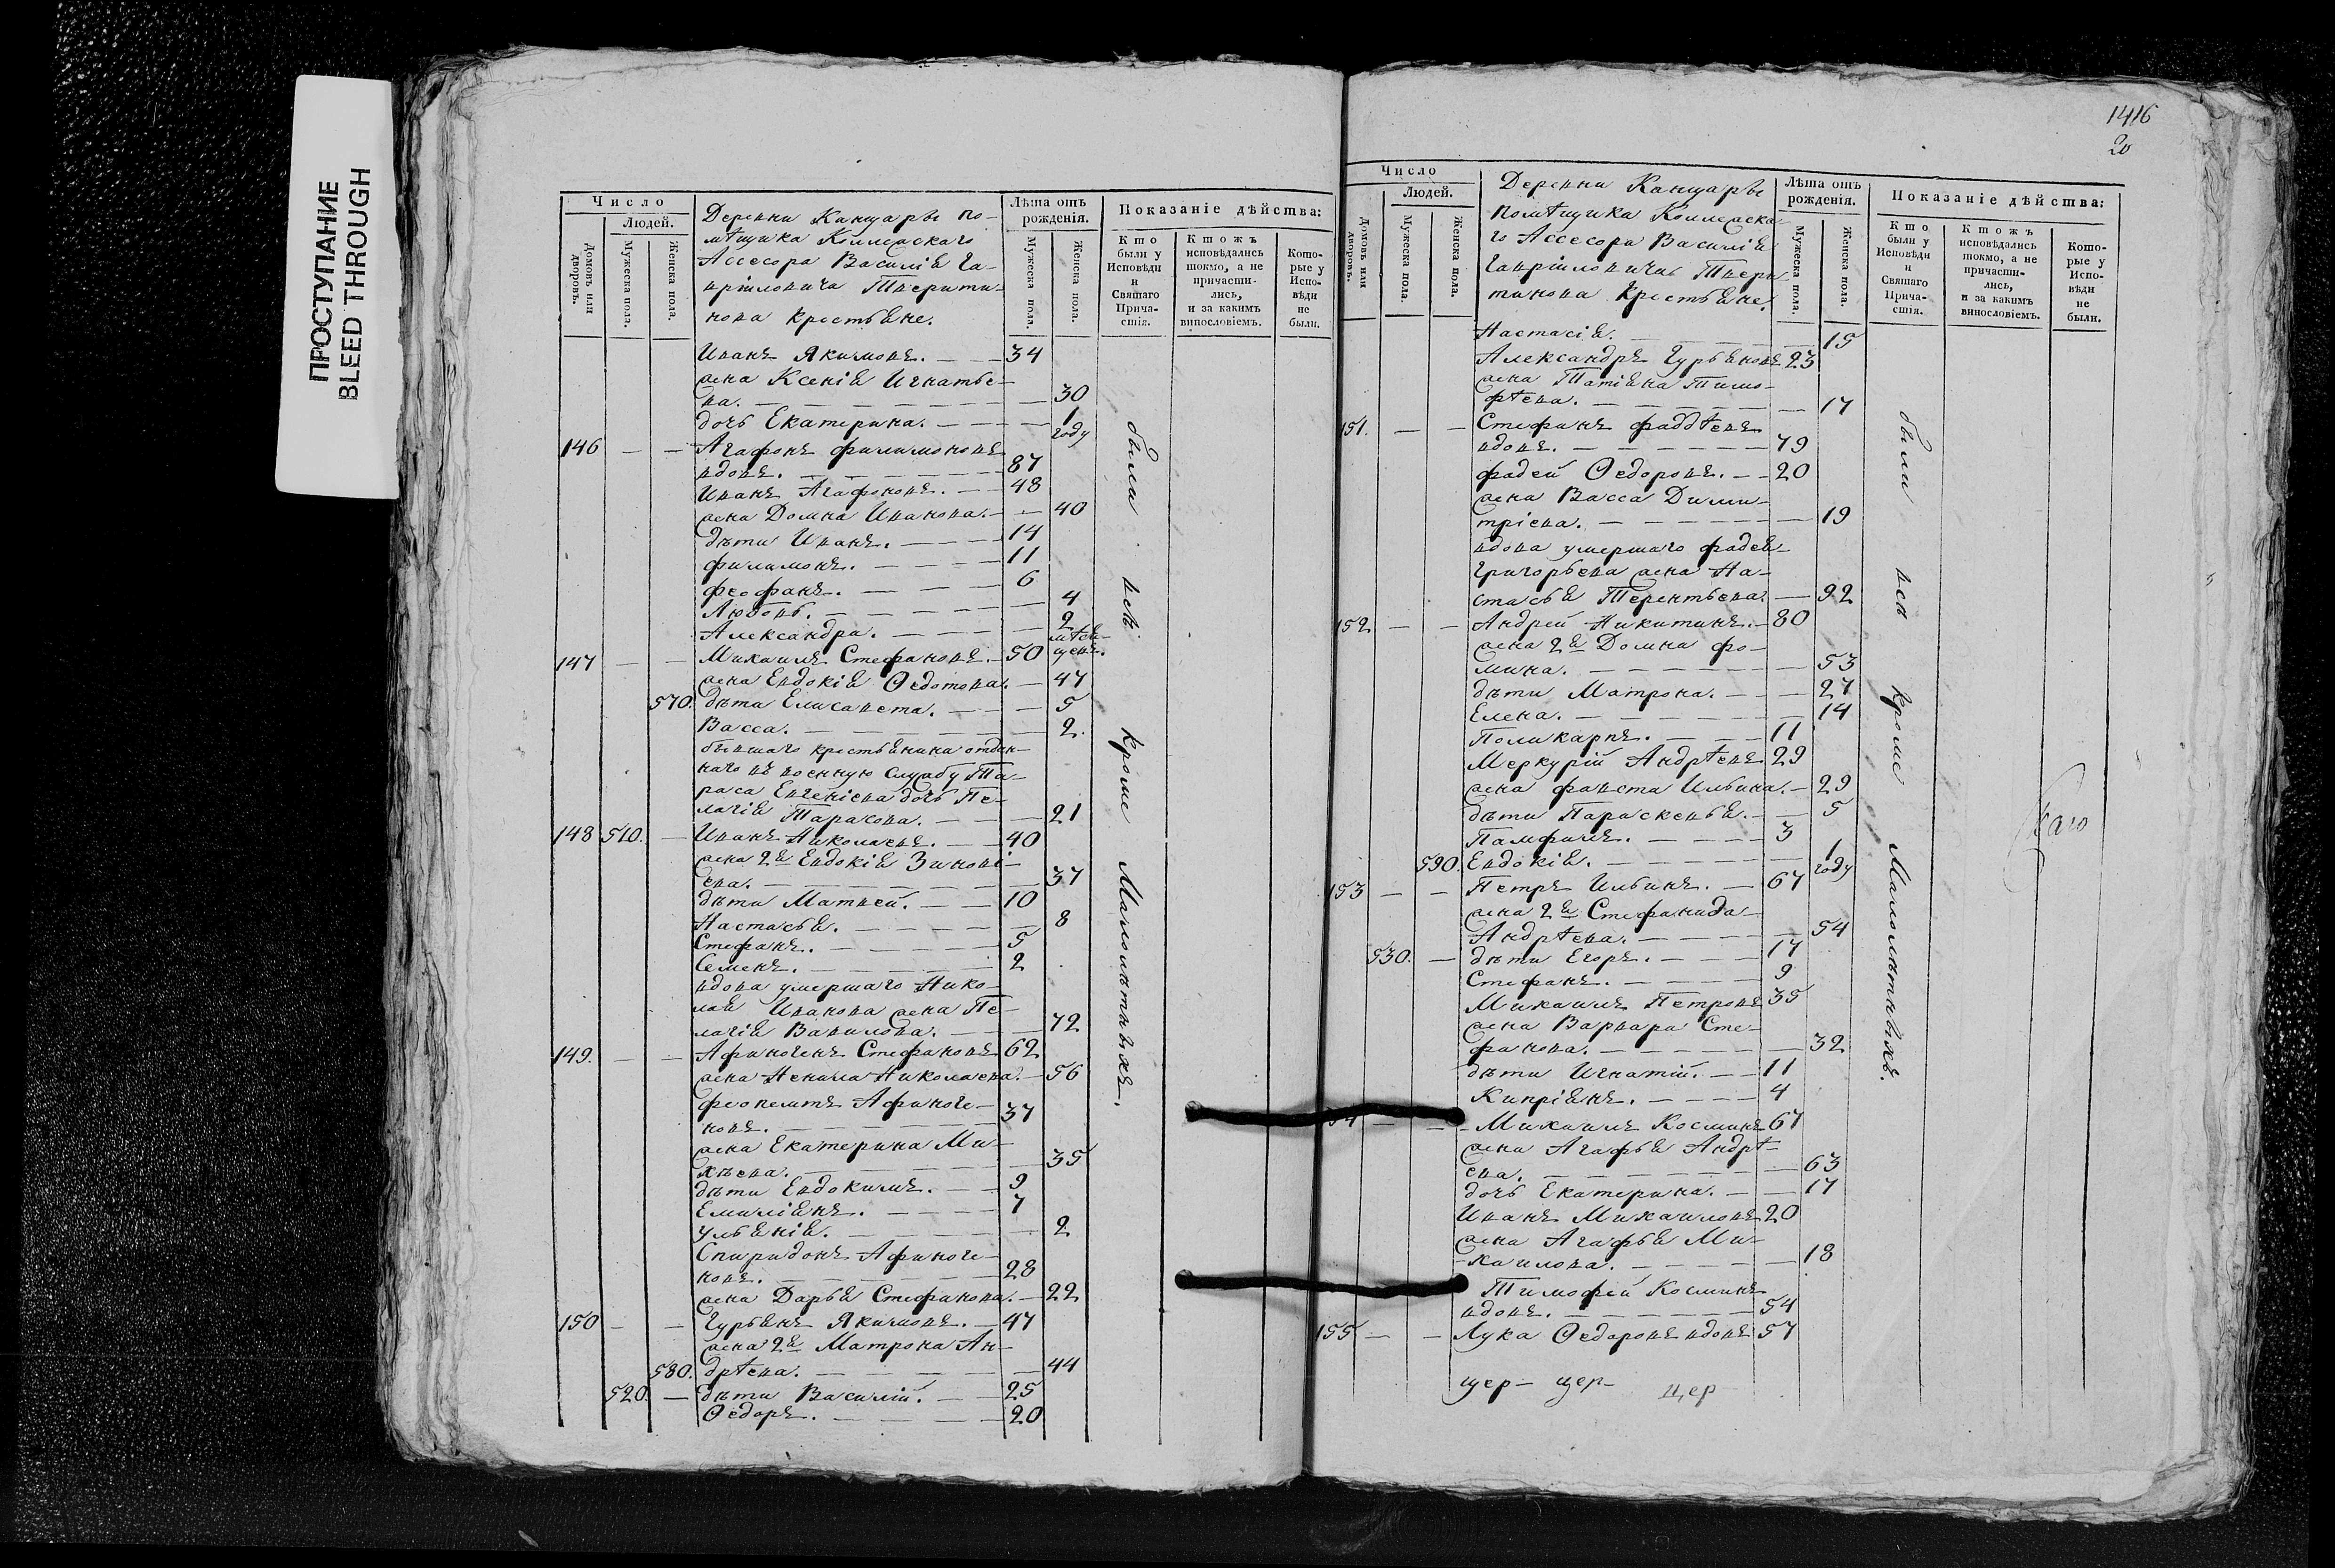 ПРОСТУПАНИЕ
BLEED THROUGH
Число
Людей.
Домовъ или дворовъ.
Мужеска пола.
Женска пола.
Деревни Канцарвы по-
мѣщика Коллежскаго
Ассесора Василія Га-
вріиловича Тверити-
нова крестьяне.
Лѣта отъ рожденія.
Мужеска пола.
Женска пола.
Показаніе дѣйства:
Кто были у Исповѣди и Святаго Прича-стія.
Ктожъ исповѣдались токмо, а не причасти-лись, и за какимъ винословіемъ.
Кото-рые у Испо-вѣди не были.
Иванъ Якимовъ. 34
жена Ксенія Игнатье-
ва. 30
дочь Екатерина. 1 году
146 Агафонъ Филимоновъ
вдовъ. 87
Иванъ Агафоновъ. 48
жена Домна Иванова. 40
дѣти Иванъ. 14
Филимонъ. 11
Феофанъ. 6
Любовь. 4
Александра. 2 мѣся-
цевъ.
147 Михаилъ Стефановъ. 50
жена Евдокія Ѳедотова. 47
570. дѣти Елисавета. 5
Васса. 2.
бывшаго крестьянина отдан-
наго въ военную службу Та-
раса Евгеніева дочь Пе-
лагія Тарасова. 21
148 510. Иванъ Николаевъ. 40
жена 2я Евдокія Зинові-
ева. 37
дѣти Матвей. 10
Настасья. 8
Стефанъ. 5
Семенъ. 2
вдова умершаго Нико-
лая Иванова жена Пе-
лагія Вавилова. 72
149. Афиногенъ Стефановъ 62
жена Ненила Николаева. 56
Феопемтъ Афиноге-
новъ. 37
жена Екатерина Ми-
хѣева. 35
дѣти Евдокимъ. 9
Емиліянъ. 7
Ульянія. 2
Спиридонъ Афиноге-
новъ. 28
жена Дарья Стефанова. 22
150 Гурьянъ Якимовъ. 47
жена 2я Матрона Ан-
580. дрѣева. 44
520. дѣти Василій. 25
Ѳедоръ. 20
были всѣ кроме Малолѣтныхъ.
1416
20
Число
Людей.
Домовъ или дворовъ.
Мужеска пола.
Женска пола.
Деревни Канцарвы
помѣщика Коллежска-
го Ассесора Василія
Гавріиловича Твери-
тинова крестьяне.
Лѣта отъ рожденія.
Мужеска пола.
Женска пола.
Показаніе дѣйства:
Кто были у Исповѣди и Святаго Прича-стія.
Ктожъ исповѣдались токмо, а не причасти-лись, и за какимъ винословіемъ.
Кото-рые у Испо-вѣди не были.
Настасія. 15
Александръ Гурьяновъ 23
жена Татіяна Тимо-
фѣева. 17
151. Стефанъ Фаддѣевъ
вдовъ. 79
Фадей Ѳедоровъ. 20
жена Васса Дими-
тріева. 19
вдова умершаго Фадея
Григорьева жена На-
стасья Терентьева. 92
152 Андрей Никитинъ. 80
жена 2я Домна Фо-
мина. 53
дѣти Матрона. 27
Елена. 14
Поликарпъ. 11
Меркурій Андрѣевъ 29
жена Фавста Ильина. 29
дѣти Параскевья. 5
Памфилъ. 3
590. Евдокія. 1 году
153 Петръ Ильинъ. 67
жена 2я Стефанида
Андрѣева. 54
530. дѣти Егоръ. 17
Стефанъ. 9
Михаилъ Петровъ 35
жена Варвара Сте-
фанова. 32
дѣти Игнатій. 11
Кипріянъ. 4
Михаилъ Косминъ 67
жена Агафья Андрѣ-
ева. 63
дочь Екатерина. 17
Иванъ Михаиловъ 20
жена Агафья Ми-
хаилова. 18
Тимофей Косминъ
вдовъ. 54
155 Лука Ѳедоровъ вдовъ 57
были всѣ кроме Малолѣтныхъ.
цер- цер- цер